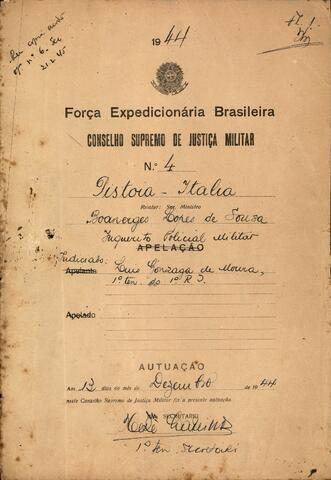 1944
Fl. 1.
of. nº 6.
21-2-45
Força Expedicionária Brasileira
CONSELHO SUPREMO DE JUSTIÇA MILITAR
N.º 4
Pistoia - Italia
Relator: Snr. Ministro
Boanerges Lopes de Souza
Inquerito Policial Militar
APELAÇÃO
Indiciado:
Apelante Luis Gonzaga de Moura,
1º ten. do 1º R. I.
Apelado
AUTUAÇÃO
Aos 13 dias do mês de Dezembro de 1944
neste Conselho Supremo de Justiça Militar fiz a presente autuação.
SECRETARIO
1º ten.